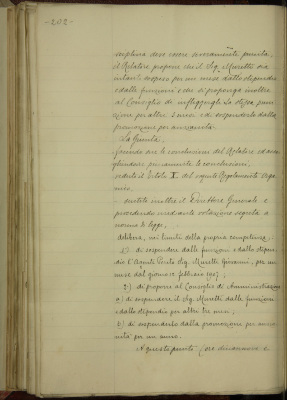 -202-
disciplina deve essere severamente punita,
il Relatore propone che il Sig. Muretti sia
intanto sospeso per un mese dallo stipendio
e dalle funzioni e che si proponga inoltre
al Consiglio di infliggergli la stessa puni
zione per altri 2 mesi e di sospenderlo dalla
promozione per anzianità.
La Giunta,
facendo sue le conclusioni del Relatore ed
pienamente le conclusioni;
veduto il titolo X del vigente Regolamento Orga
nico,
sentito inoltre il Direttore Generale e
procedendo mediante votazione segreta a
norma di legge,
delibera, nei limiti della propria competenza:
1°) di sospendere dalle funzioni e dallo stipen
dio l' Sig. Muretti Giovanni, per un
mese dal giorno febbraio 1907;
2°) di proporre al Consiglio di Amministrazione
a) di sospendere il Sig. Muretti dalle funzioni
e dallo stipendio per altri tre mesi,
b) di sospenderlo dalla promozione per anzia
nità per un anno.
A questo punto,